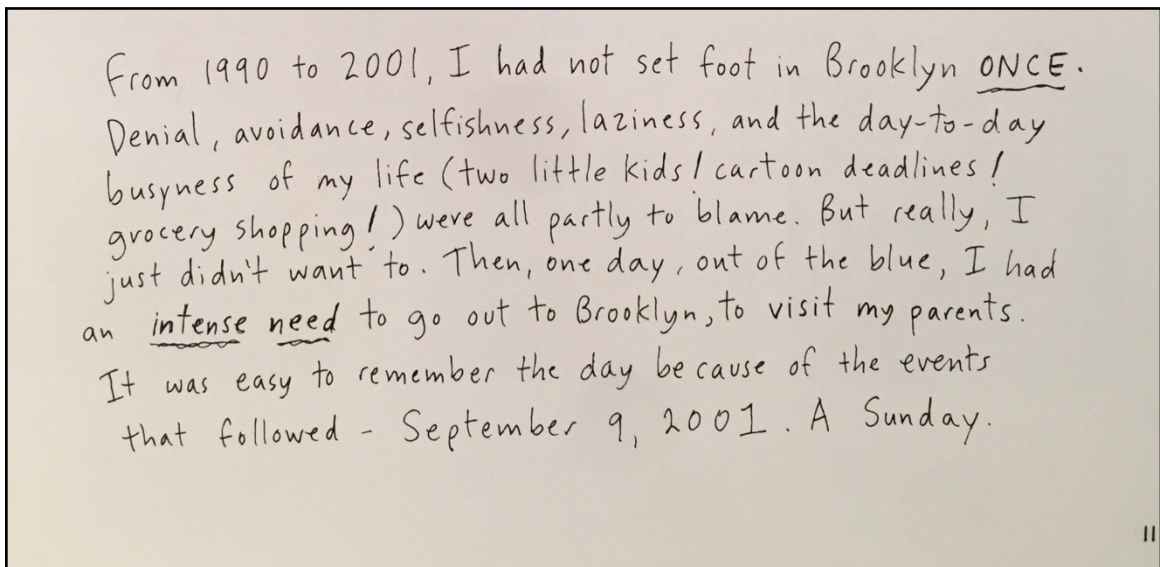 From 1990 to 2001, I had not set foot in Brooklyn ONCE.
Denial, avoidance, selfishness, laziness, and the day-to-day
busyness of my life (two little kids! cartoon deadlines!
grocery shopping!) were all partly to blame. But really, I
just didn't want to. Then, one day, out of the blue, I had
an intense need to go out to Brooklyn, to visit my parents.
It was easy to remember the day because of the events
that followed - September 9, 2001. A Sunday.
11